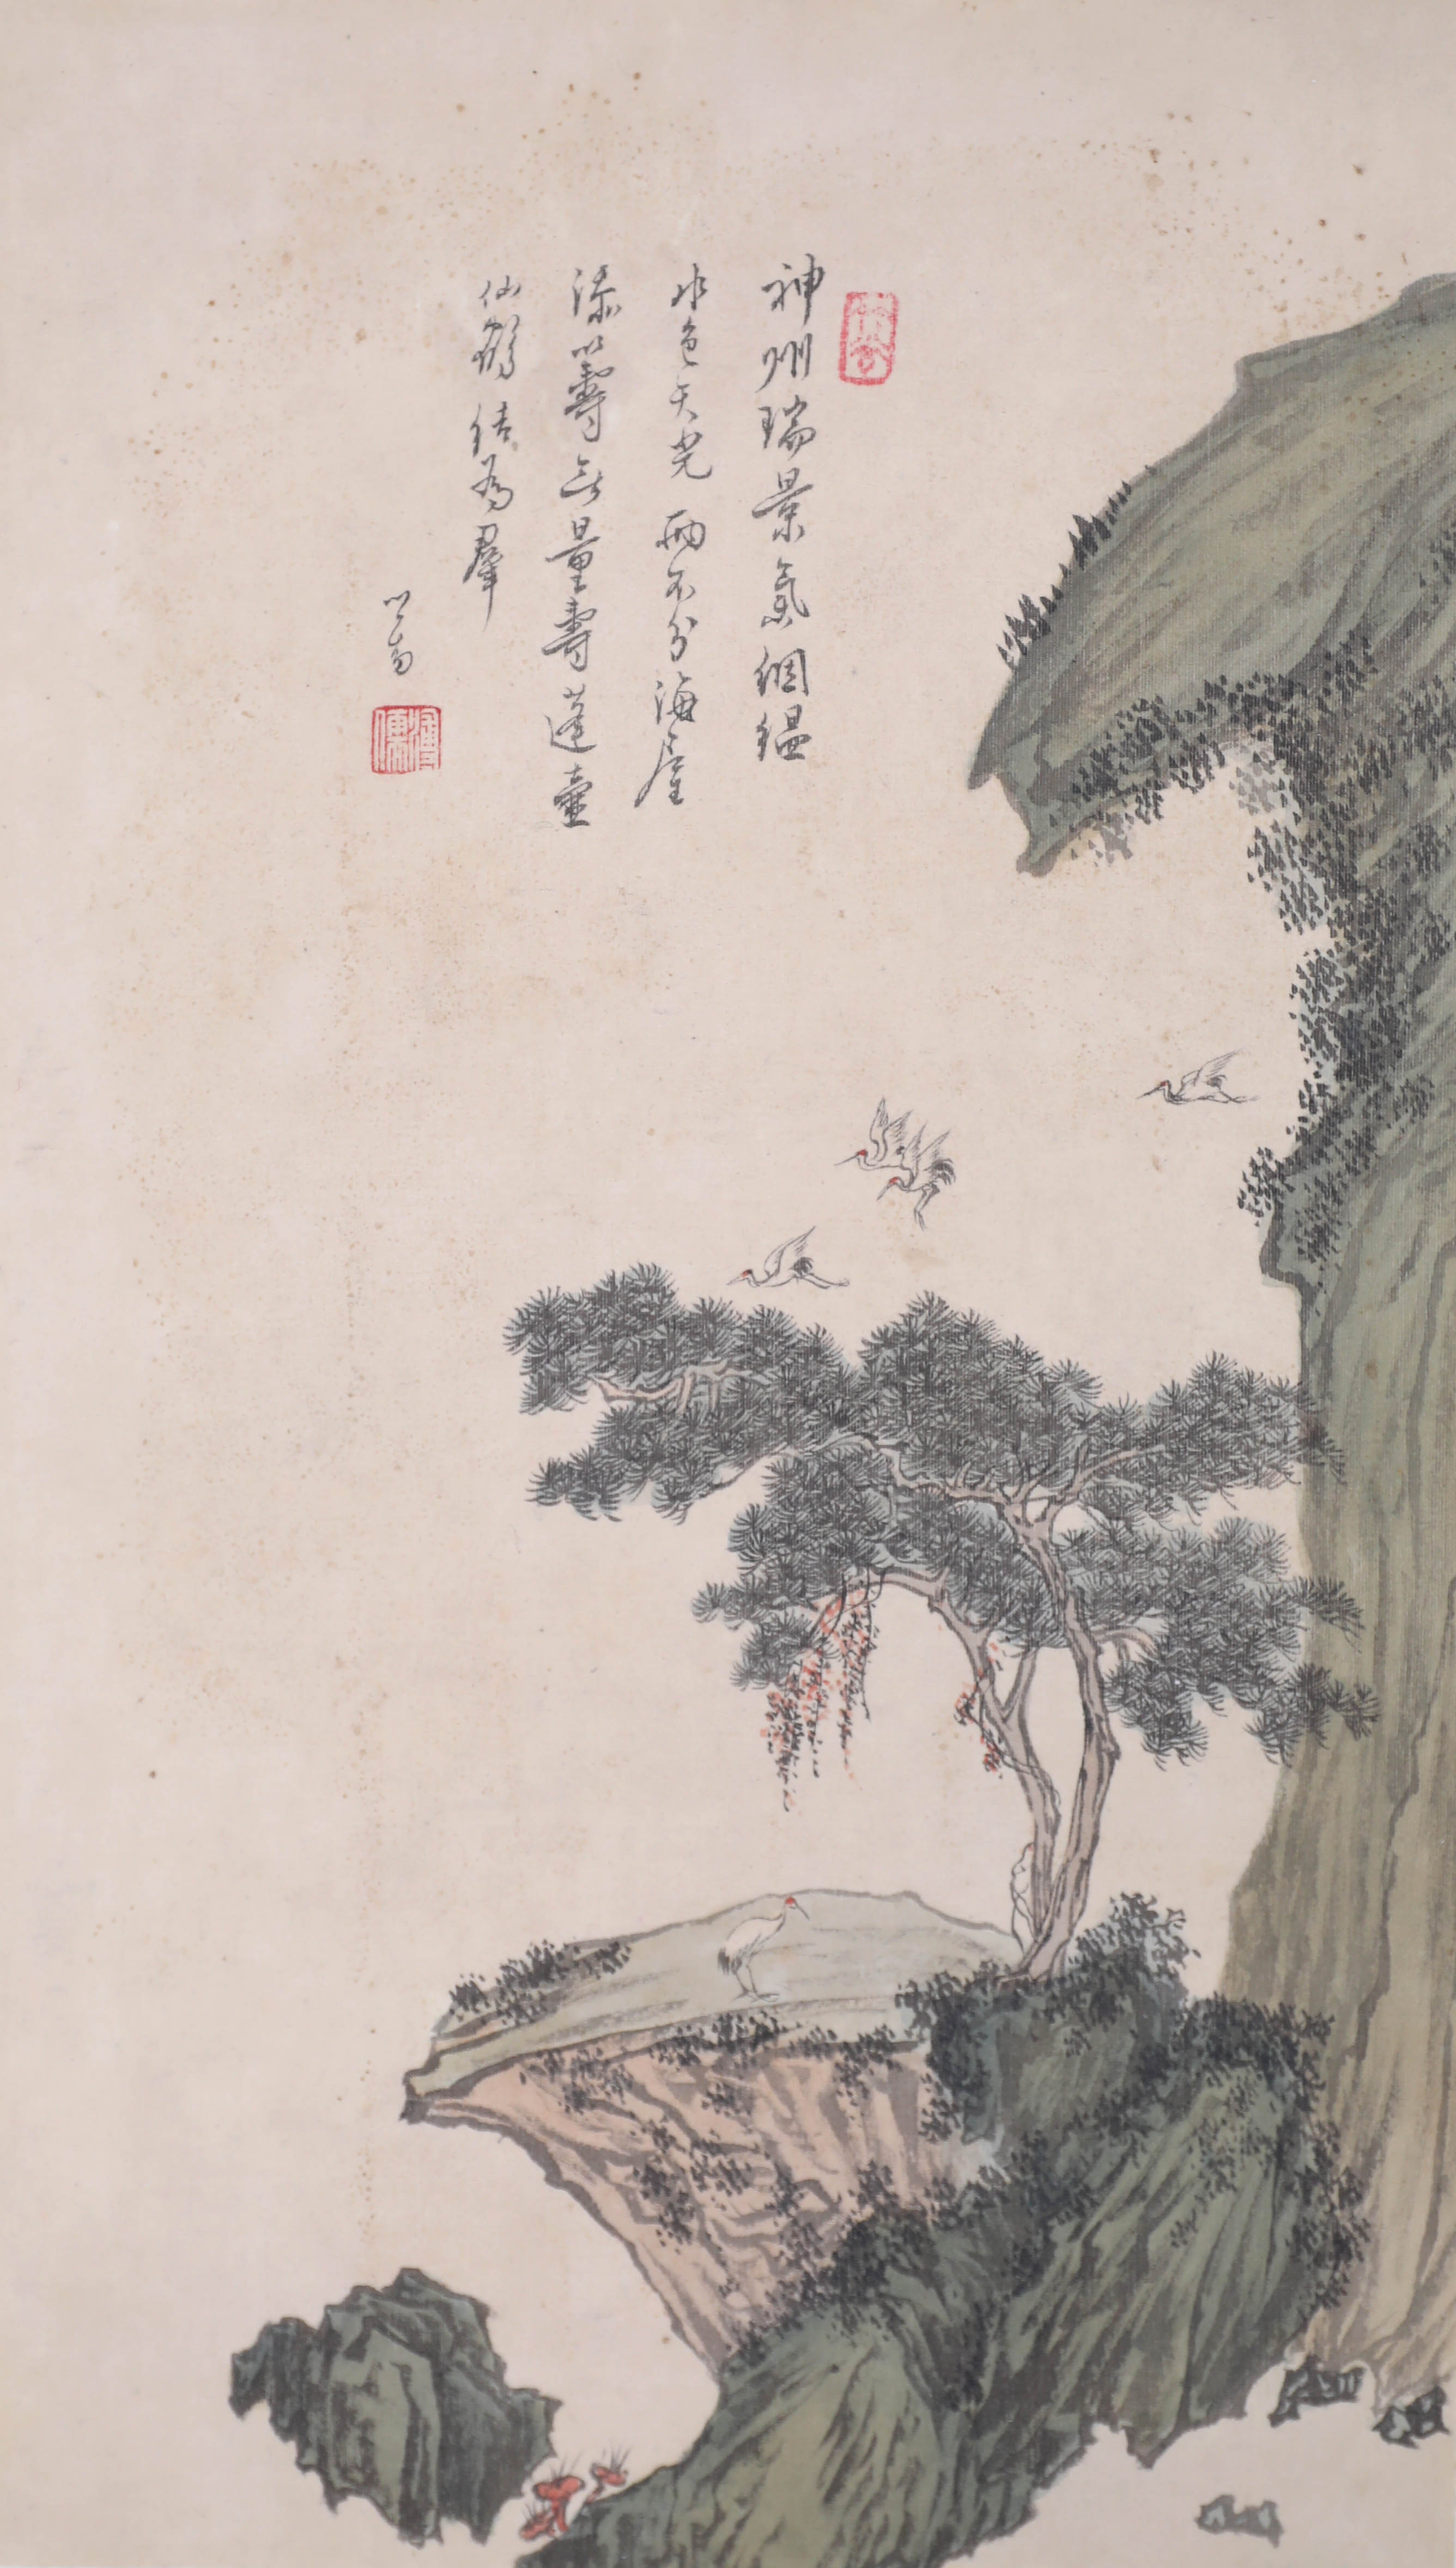 神州瑞景氣絪縕
水色天光兩不分海屋
添籌無量壽蓬壺
仙鶴結為羣
心畬
溥儒